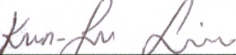 Kun-Lu Liu